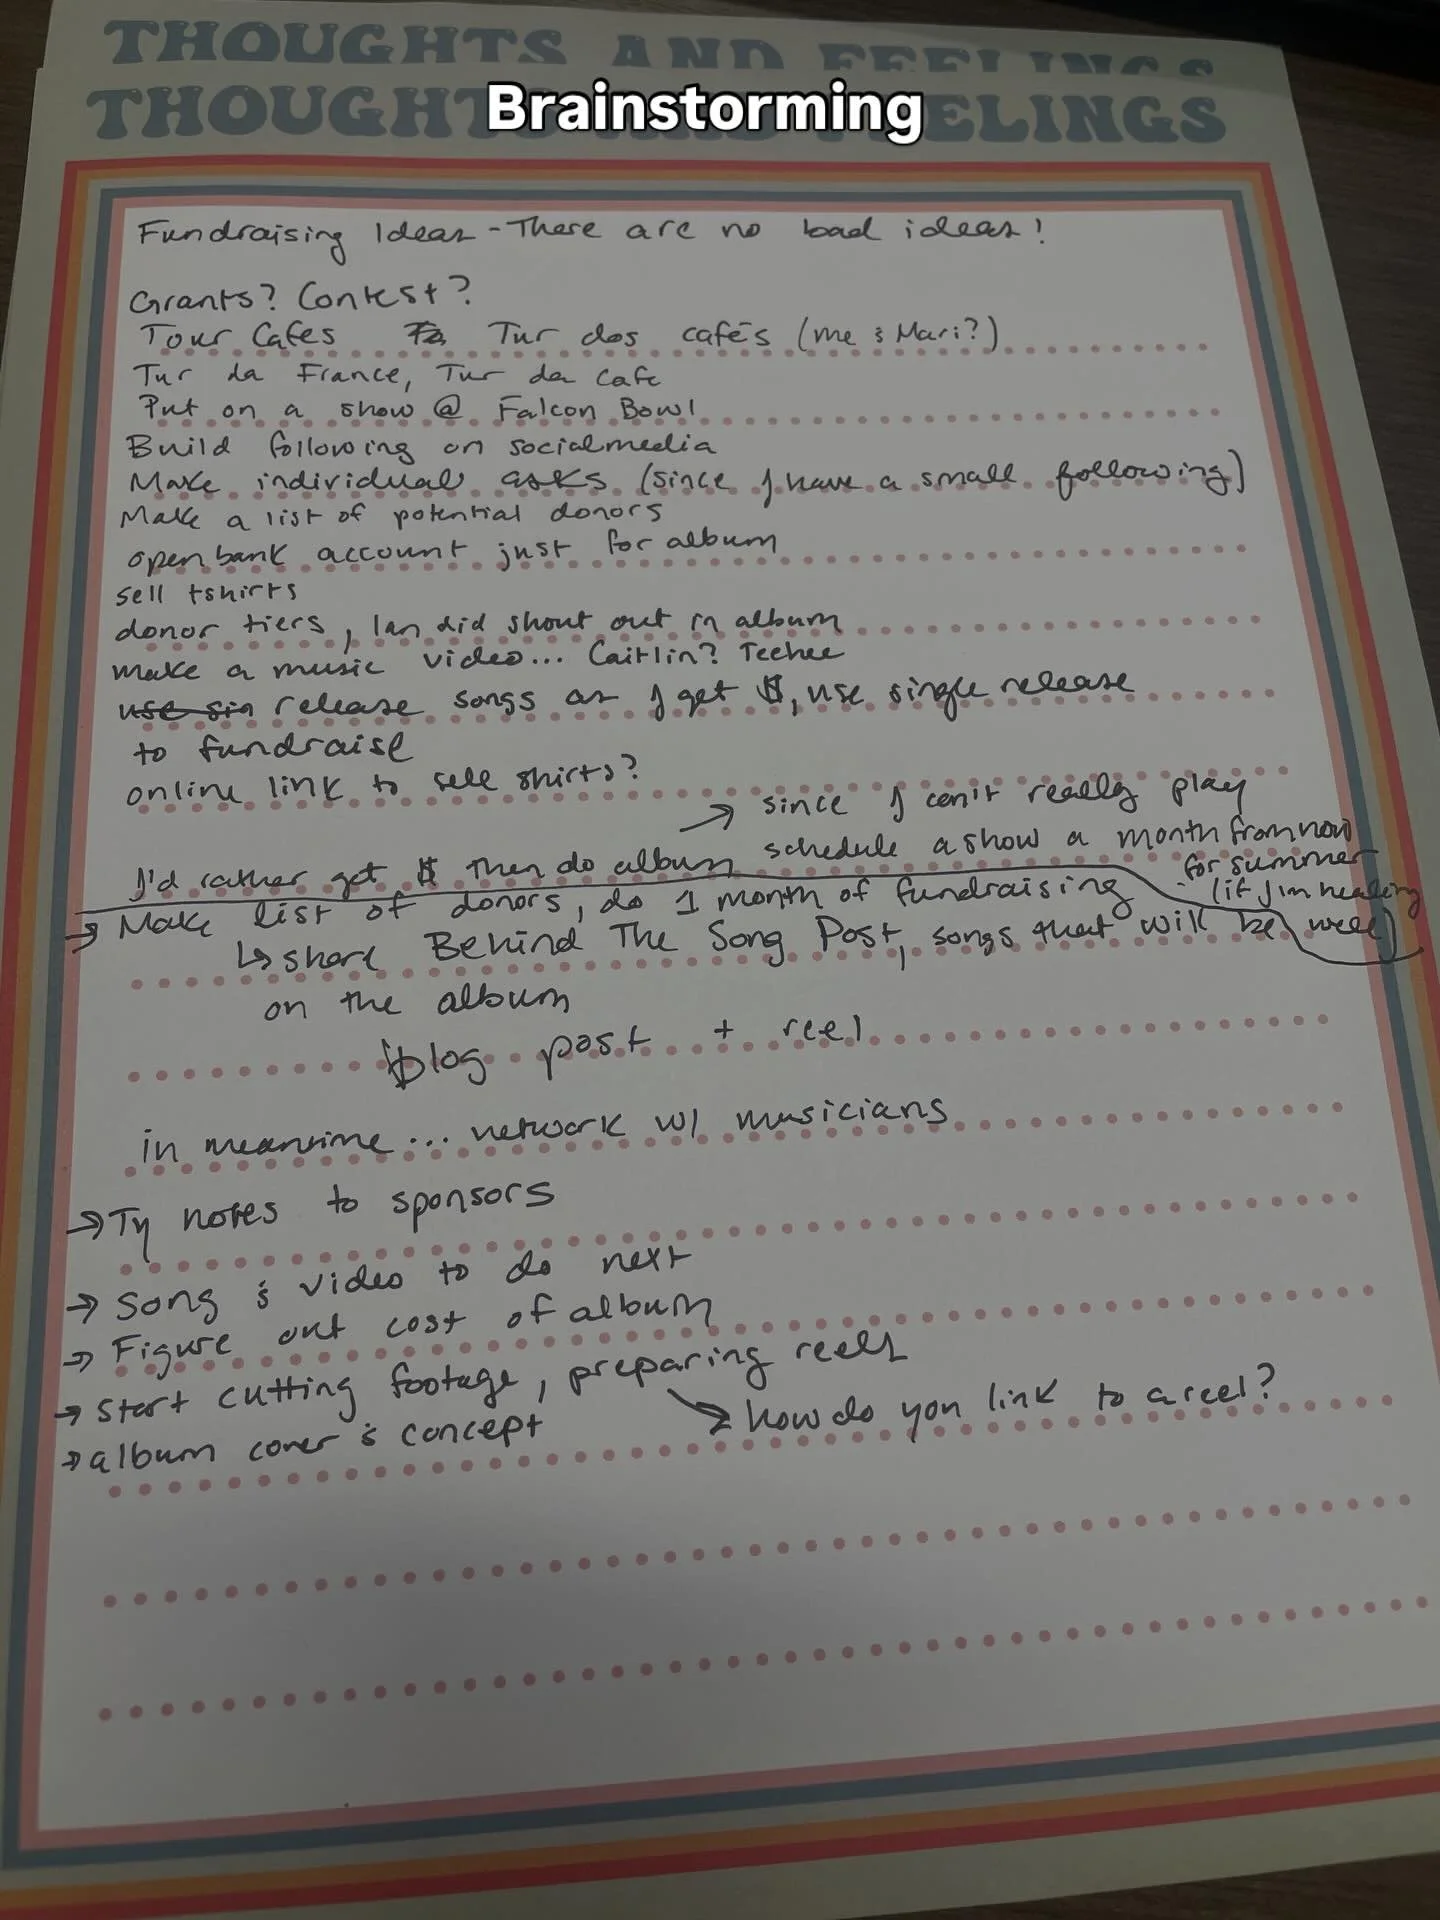 THOUGHTS AND FEELINGS
THOUGHTS ELINGS
Brainstorming
Fundraising Ideas - There are no bad ideas!
Grants? Contest?
Tour Cafes Tur dos cafés (me & Mari?)
Tur da France, Tur da Cafe
Put on a show @ Falcon Bowl
Build following on socialmedia
Make individual asks (since I have a small following)
Make a list of potential donors
open bank account just for album
sell tshirts
donor tiers, Ian did shout out in album
make a music video... Caitlin? Teehee
use sin release songs as I get $, use single release
to fundraise
online link to sell shirts?
→ since I can't really play
schedule a show a month from now
for summer
(if I'm healing
well)
I'd rather get $ then do album
→ Make list of donors, do 1 month of fundraising
↳ share Behind The Song Post, songs that will be
on the album
blog post + reel
in meantime... network w/ musicians
→ Ty notes to sponsors
→ Song & video to do next
→ Figure out cost of album
→ Start cutting footage, preparing reels
→ how do you link to a reel?
→ album cover & concept